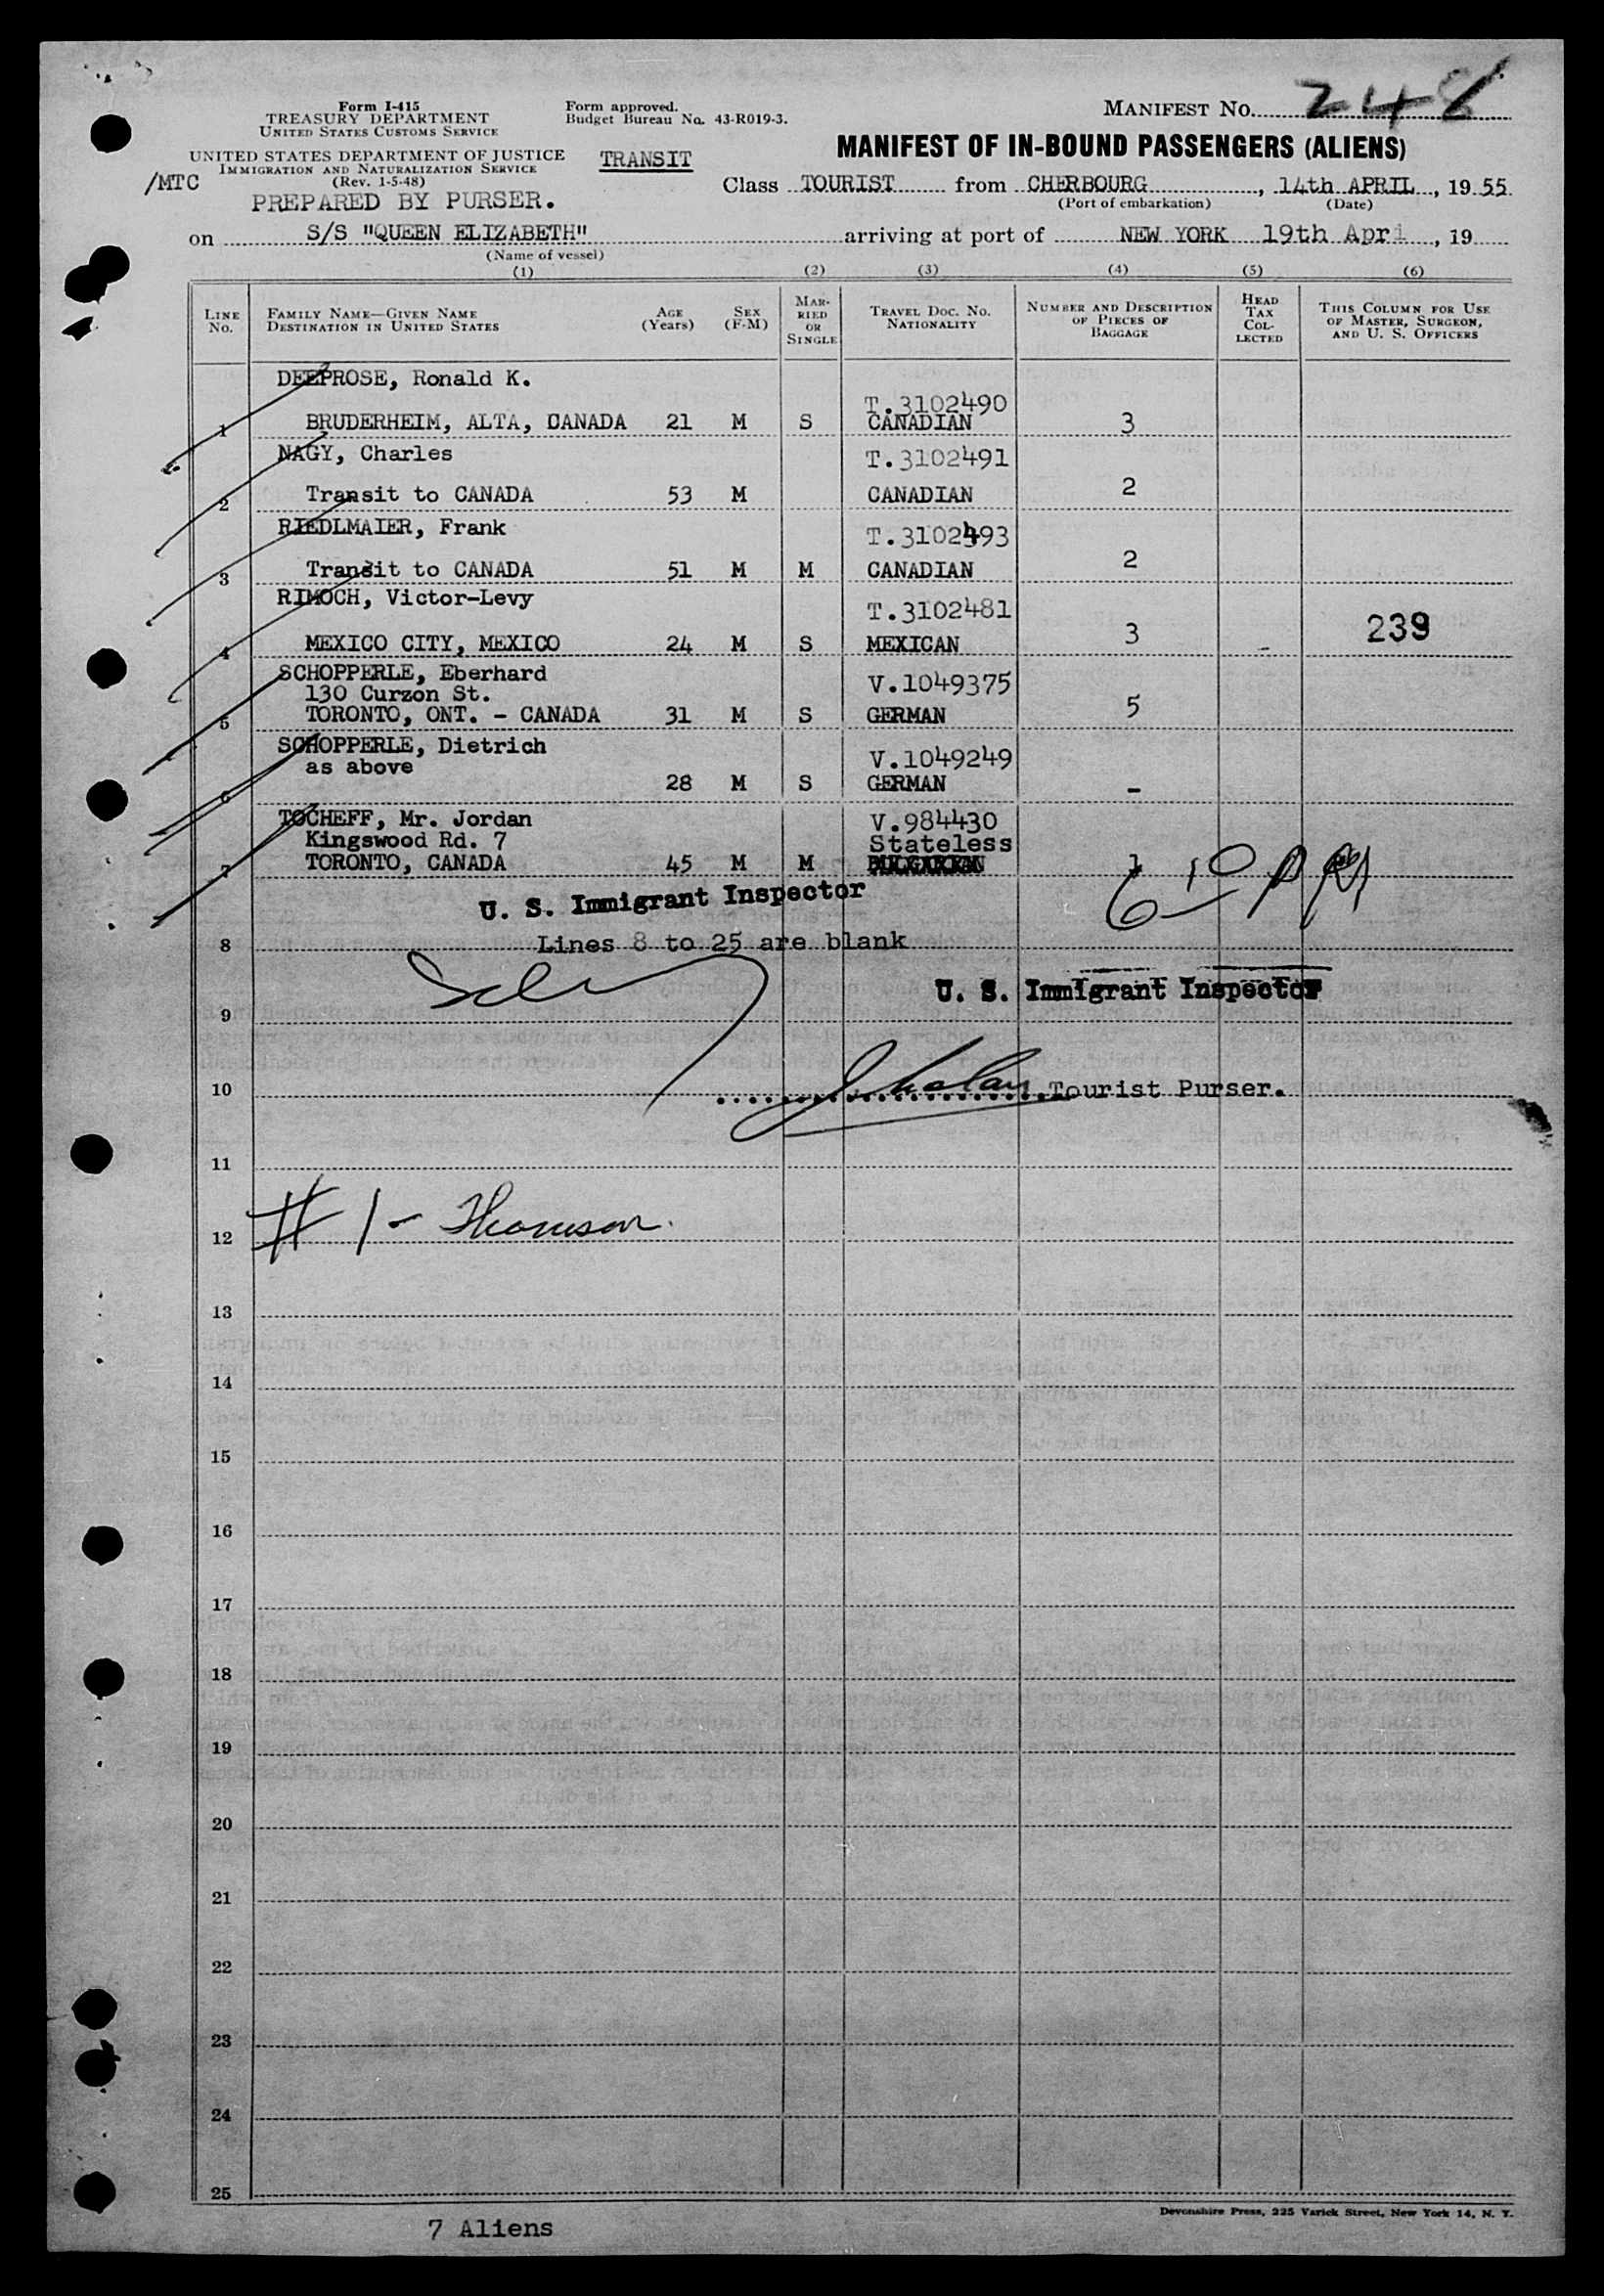 Form I-415
TREASURY DEPARTMENT
UNITED STATES CUSTOMS SERVICE
Form approved.
Budget Bureau No. 43-R019-3.
MANIFEST NO. 248
UNITED STATES DEPARTMENT OF JUSTICE
IMMIGRATION AND NATURALIZATION SERVICE
(Rev. 1-5-48)
/MTC
PREPARED BY PURSER.
TRANSIT
MANIFEST OF IN-BOUND PASSENGERS (ALIENS)
Class TOURIST from CHERBOURG, 14th APRIL, 19 55
(Port of embarkation) (Date)
on S/S "QUEEN ELIZABETH" arriving at port of NEW YORK 19th Apri , 19
(Name of vessel)
(1) (2) (3) (4) (5) (6)
LINE No. FAMILY NAME—GIVEN NAME DESTINATION IN UNITED STATES AGE (Years) SEX (F-M) MARRIED OR SINGLE TRAVEL DOC. NO. NATIONALITY NUMBER AND DESCRIPTION OF PIECES OF BAGGAGE HEAD TAX COLLECTED THIS COLUMN FOR USE OF MASTER, SURGEON, AND U. S. OFFICERS
DEEPROSE, Ronald K. T.3102490
1 BRUDERHEIM, ALTA, CANADA 21 M S CANADIAN 3
NAGY, Charles T.3102491
2 Transit to CANADA 53 M CANADIAN 2
RIEDLMAIER, Frank T.3102493
3 Transit to CANADA 51 M M CANADIAN 2
RIMOCH, Victor-Levy T.3102481
4 MEXICO CITY, MEXICO 24 M S MEXICAN 3 - 239
SCHOPPERLE, Eberhard V.1049375
130 Curzon St.
5 TORONTO, ONT. - CANADA 31 M S GERMAN 5
SCHOPPERLE, Dietrich V.1049249
as above
6 28 M S GERMAN -
TOCHEFF, Mr. Jordan V.984430
Kingswood Rd. 7 Stateless
7 TORONTO, CANADA 45 M M 1
U. S. Immigrant Inspector
8 Lines 8 to 25 are blank
U. S. Immigrant Inspector
9
10 Tourist Purser.
11
12 # 1 - Thomson.
13
14
15
16
17
18
19
20
21
22
23
24
25
Devonshire Press, 225 Varick Street, New York 14, N. Y.
7 Aliens